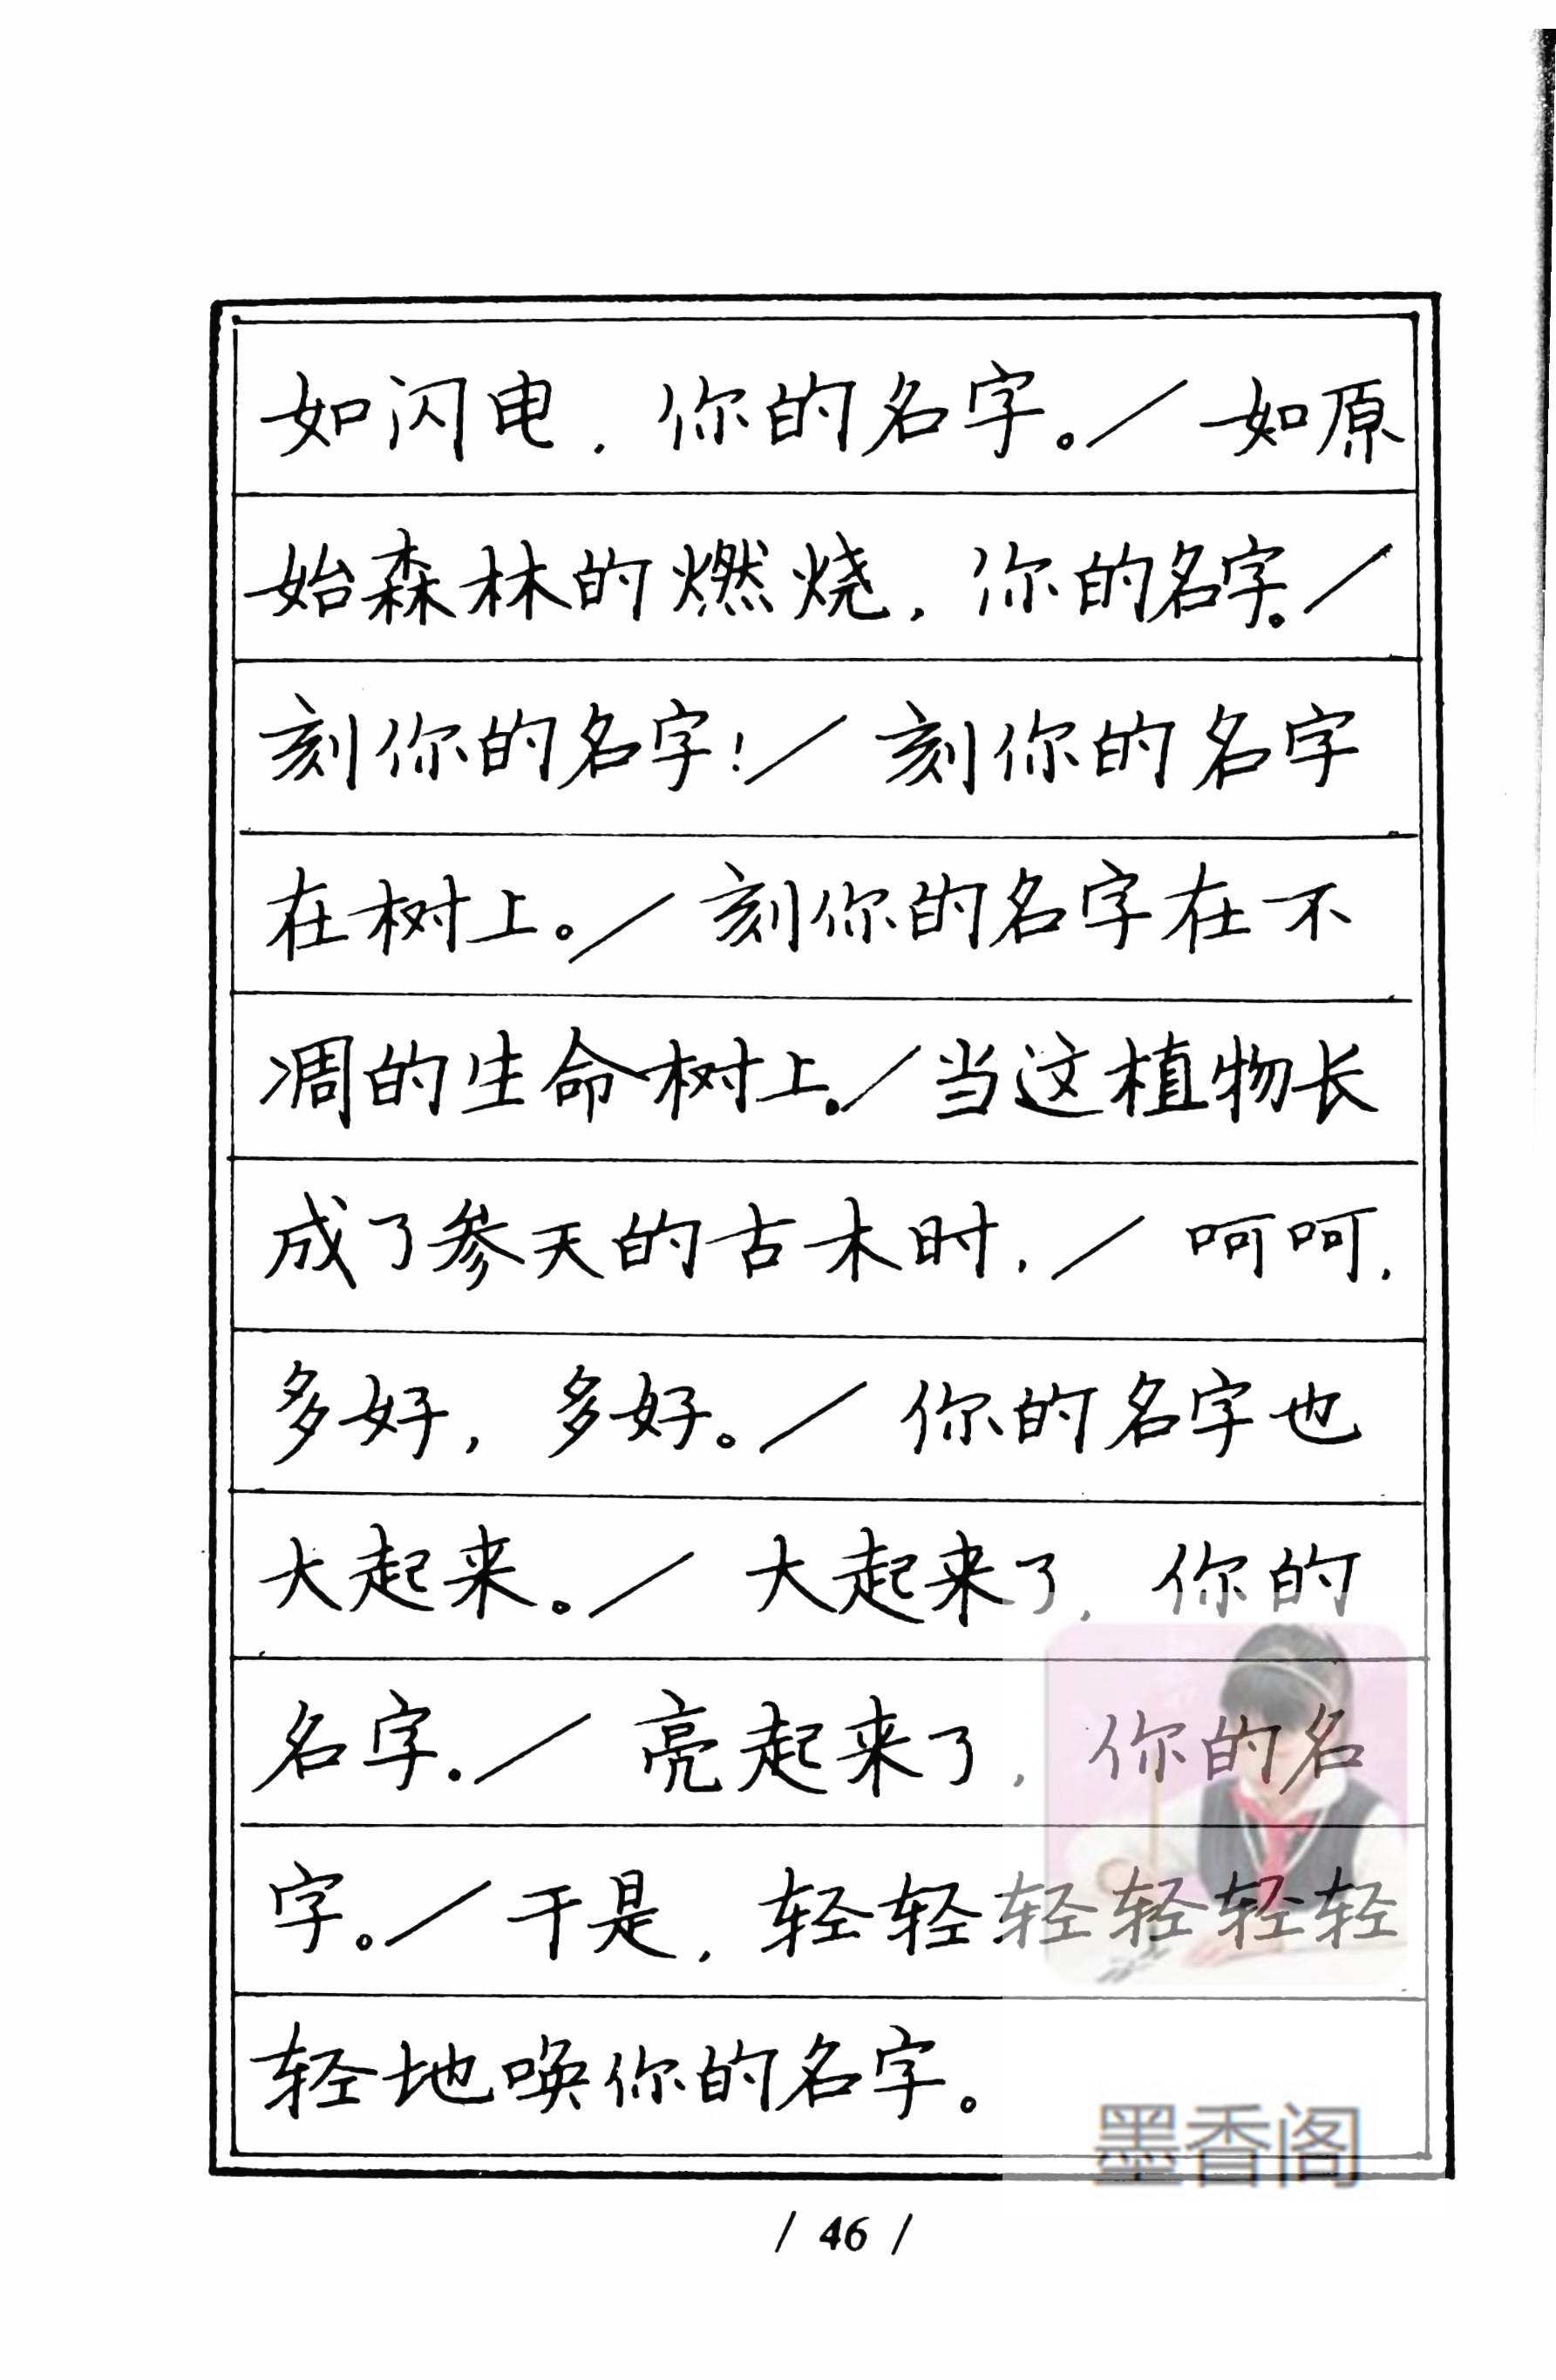 如闪电，你的名字。／如原
始森林的燃烧，你的名字。／
刻你的名字！／刻你的名字
在树上。／刻你的名字在不
凋的生命树上。／当这植物长
成了参天的古木时，／呵呵，
多好，多好。／你的名字也
大起来。／大起来了，你的
名字。／亮起来了，你的名
字。／于是，轻轻轻轻轻轻
轻地唤你的名字。
墨香阁
/ 46 /